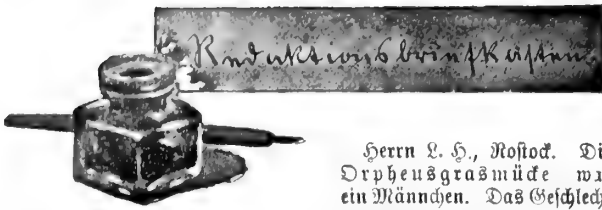 Redaktionsbriefkasten.
Herrn L. H., Rostock. Di
Orpheusgrasmücke wa
ein Männchen. Das Geschlech